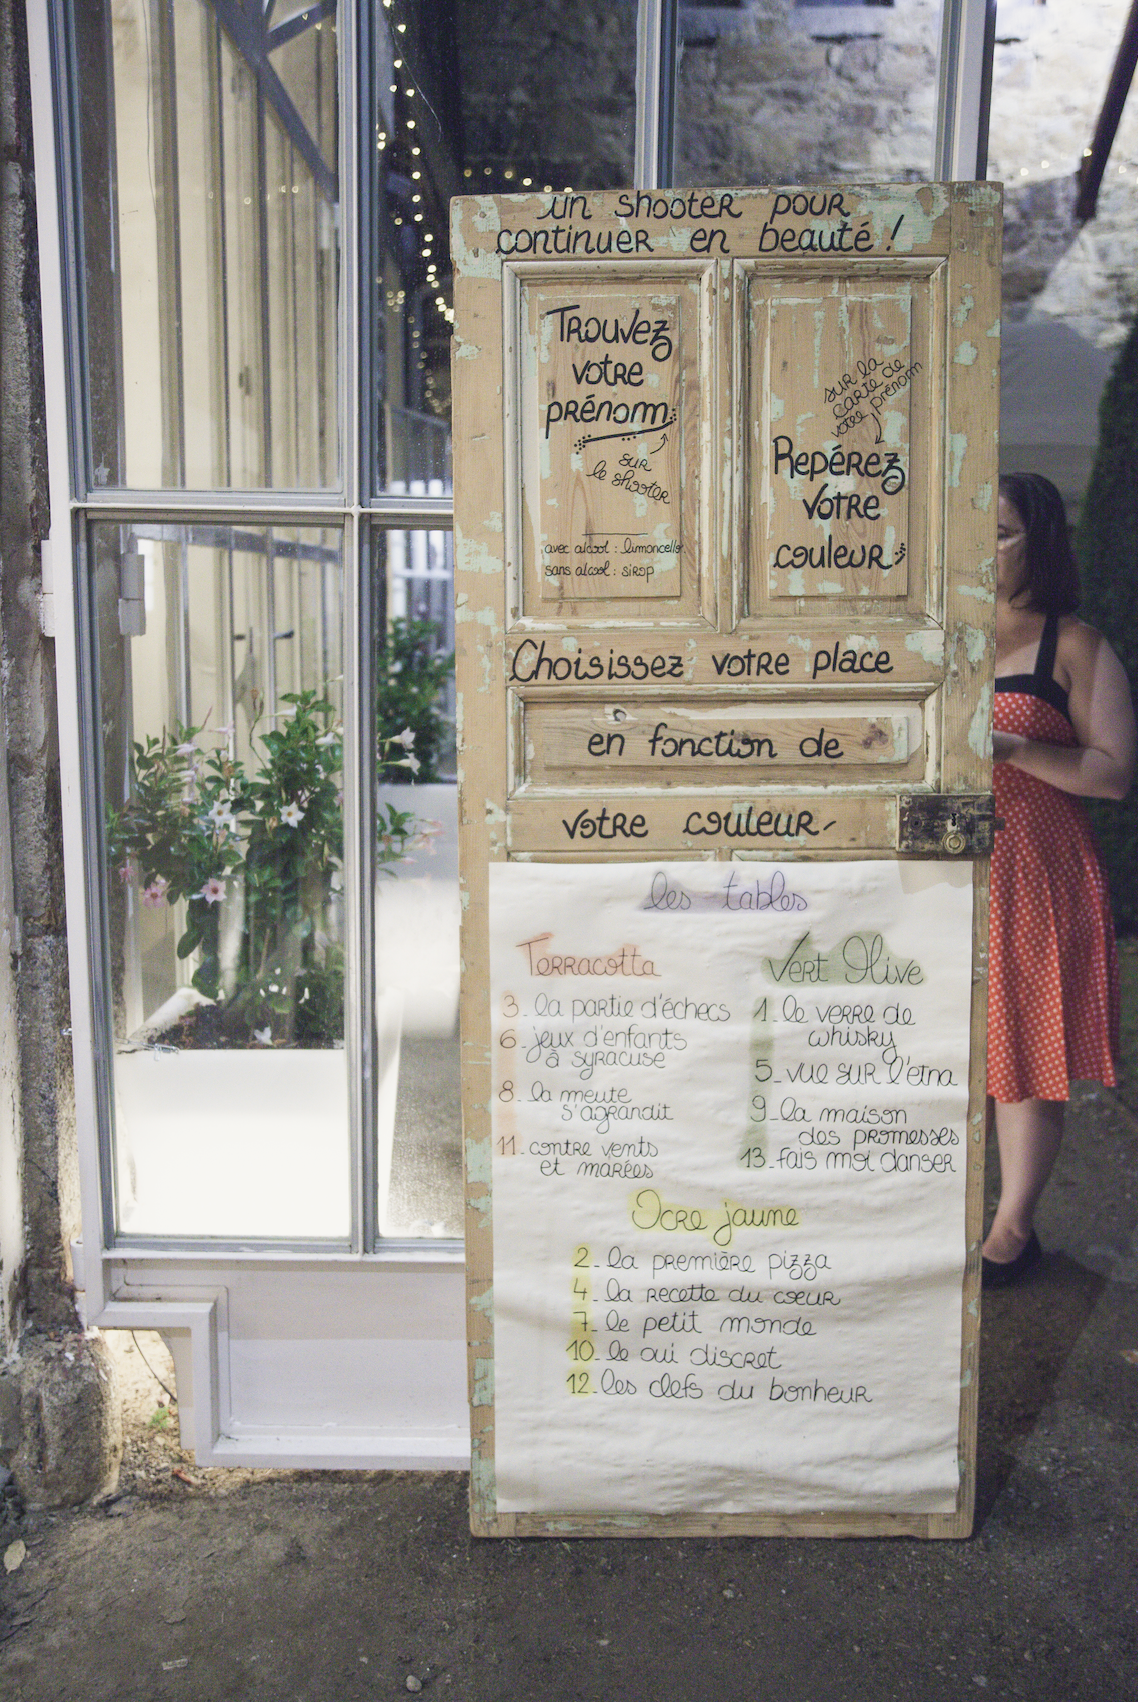 un shooter pour
continuer en beauté !
Trouvez
votre
prénom
sur
le shooter
avec alcool : limoncello
sans alcool : sirop
sur la
carte de
votre prénom
Repérez
votre
couleur
Choisissez votre place
en fonction de
votre couleur
les tables
Terracotta
3. la partie d'échecs
6. jeux d'enfants
à syracuse
8. la meute
s'agrandit
11. contre vents
et marées
Vert Olive
1. le verre de
whisky
5. vue sur l'etna
9. la maison
des promesses
13. fais moi danser
Ocre jaune
2. la première pizza
4. la recette du coeur
7. le petit monde
10. le oui discret
12. les clefs du bonheur